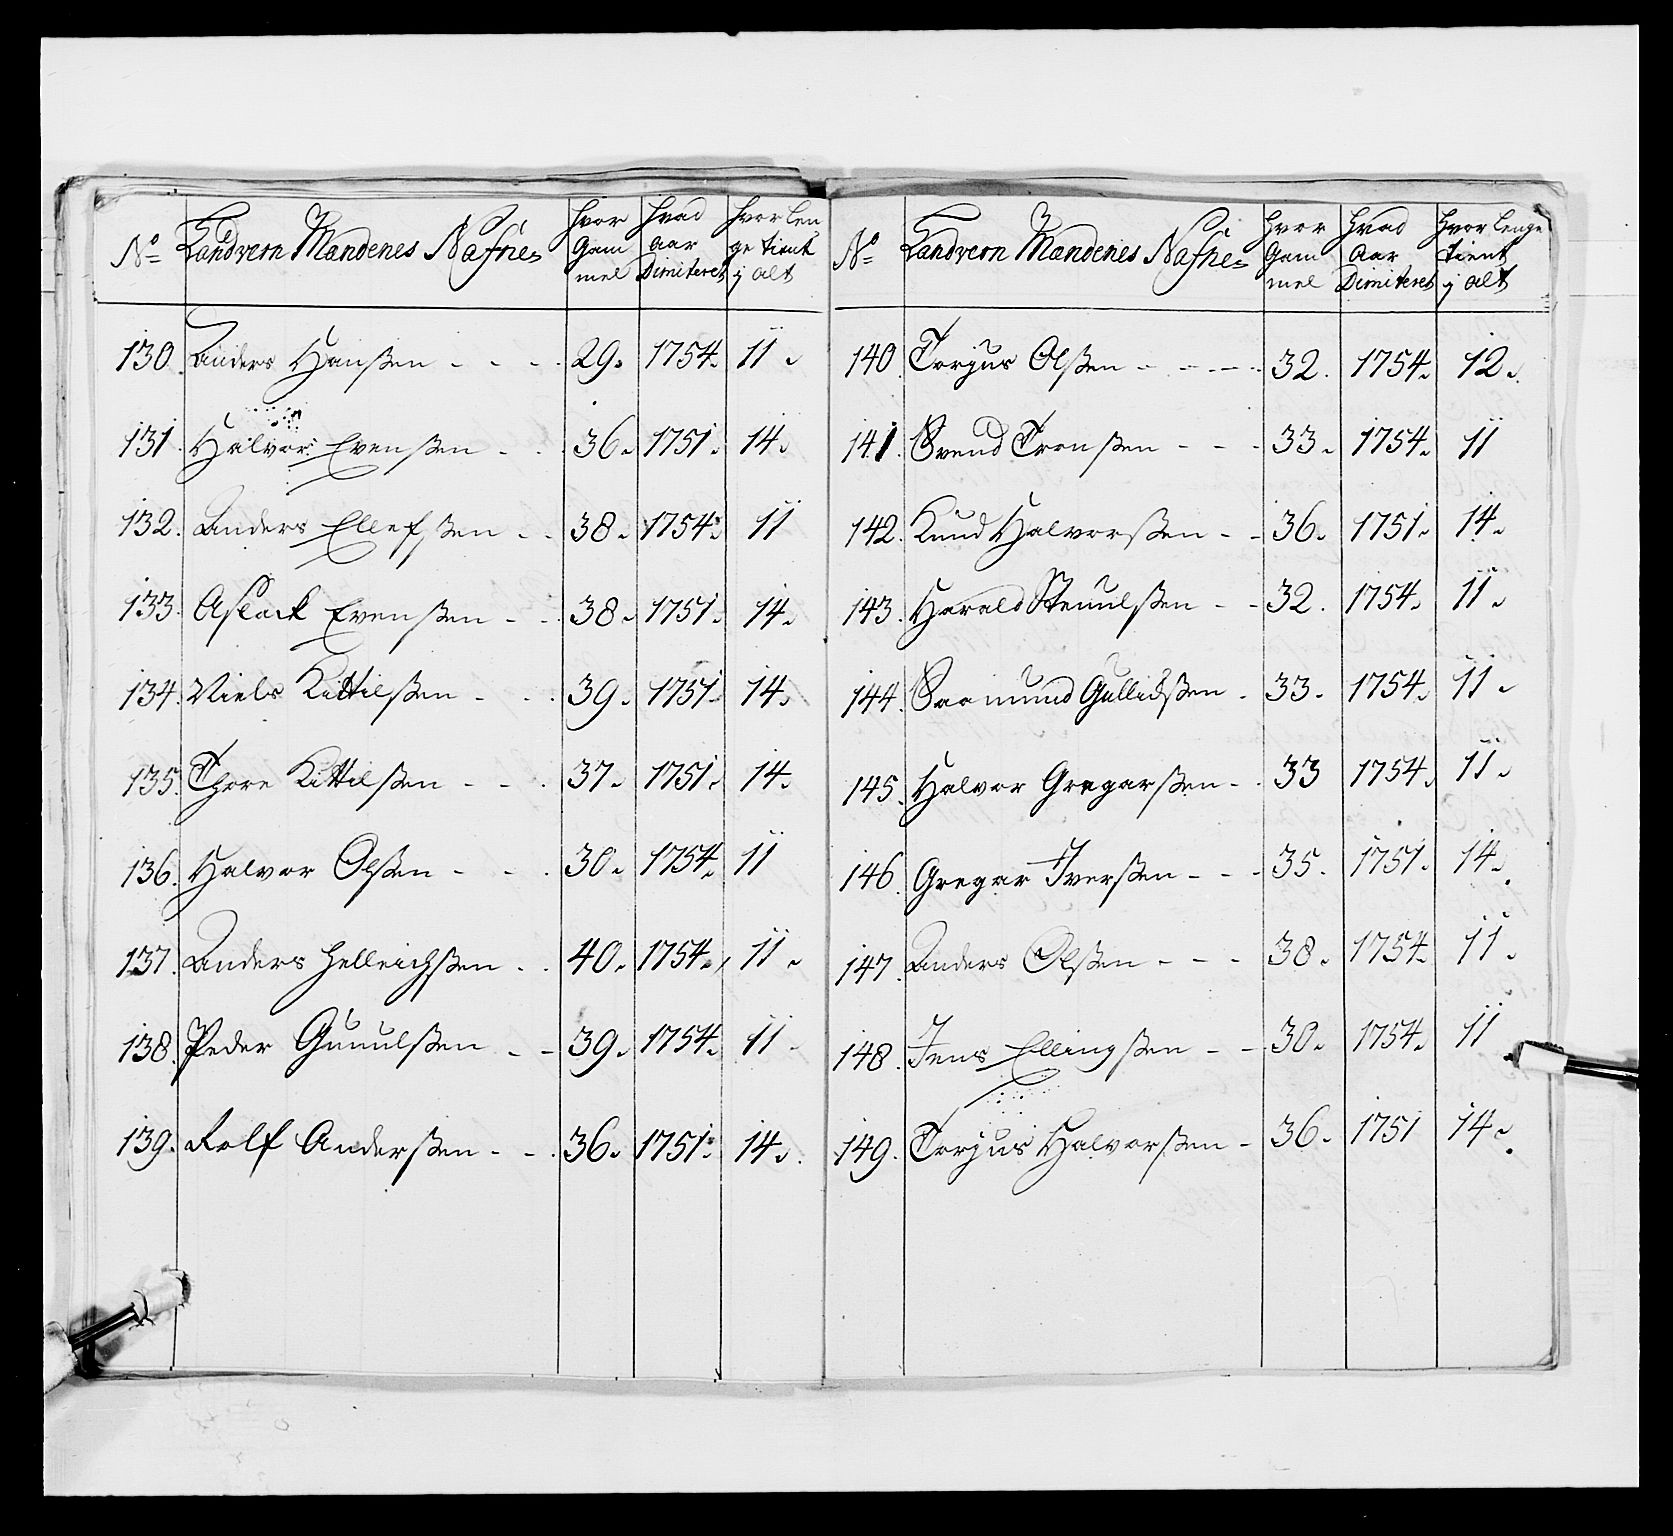 No Landvern Mandenes Nafne= hvor Gam mel hvad aar Dimiteret hvor len ge tient j alt
130. Anders Hanßen - - - 29. 1754. 11.
131. Halvor Evenßen - - 36. 1751. 14.
132. Anders Ellefsßen - - 38. 1754. 11
133. Aslack Evenßen - - 38. 1751. 14.
134. Niels Kittilßen - - - 39. 1751. 14.
135. Thore Kittilßen - - - 37. 1751. 14.
136. Halvor Olßen - - - 30. 1754. 11
137. Anders Hellrichßen - - 40. 1754. 11.
138. Peder Gunulßen - - 39. 1754. 11.
139. Rolf Anderßen - - - 36. 1751. 14.
No Landvern Mandenes Nafne= hvor Gam mel hvad Aar Dimiteret hvor lenge tient j alt
140. Torjus Olßen - - - - 32. 1754. 12.
141. Svend Tronßen - - - 33. 1754. 11
142. Knud Halvorßen - - 36. 1751. 14.
143. Harald Stenulßen - - 32. 1754. 11.
144. Saamund Gullichßen - 33. 1754. 11.
145. Halvor Gregarßen - - 33 1754. 11.
146. Gregar Iverßen - - - 35. 1751. 14.
147. Anders Olßen - - - 38. 1754. 11.
148. Jens Ellingßen - - 30. 1754. 11
149. Torjus Halvorßen - 36. 1751 14.